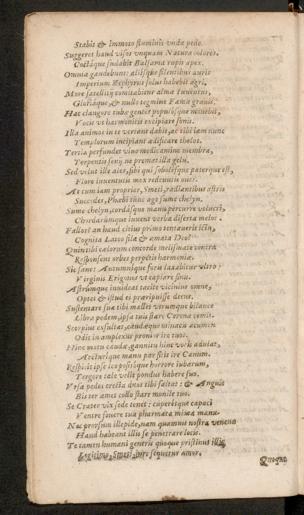 Stabit & immoto fluminis vnda pede.
Suggeret haud visos vnquam Natura colores,
Coctáque sudabit Balsama rupis apex.
Omnia gaudebunt: aliisque silentibus auris
Imperium Zephyrus solus habebit agri,
More satellitij comitabitur alma Iuuentus,
Gloriáque, & nullo tegmine Fama grauis.
Hac clangore tuba genus populosque mouebit,
Vocis ut humanus excipiare sonis.
Illa animos in te vertens dabit, ac tibi iam nunc
Templorum incipiant ædificare tholos.
Tertia perfundet vino medicamine membra,
Serpentis senij ne premat illa gelu.
Sed velut ille aies, sibi qui sobolesque paterque est,
Flore iuuentutis mox rediuiuus eris.
At cum iam proprior, Smeti, radiantibus astris
Succedes, Phœbi tunc age sume chelyn.
Sume chelyn, cordasque manu percurre volucri,
Chordarúmque iuuent verba diserta melos.
Fallor? an haud citius primo tentaueris ictu,
Cognita Latoo fila & amata Deo?
Quin tibi cælorum concorde melismate ventra
Responsent orbes perpetis harmonia.
Sic sane: Autumnique fores laxabitur vltro
Virginis Erigones vt capiare sinu.
Astrúmque inuideat tacite vicinius omne,
Optet & istud ei præripuisse decus.
Sustentare sua tibi mallet vtrumque bilance
Libra pedem, ipsa tuis stare Corona comis.
Scorpius exsultat, caudaque minacis acumen
Odit in amplexus pronior ire tuos.
Hinc motu caudæ, gannitu hinc vocis adulat,
Arcturique manu par sciit ire Canum.
Respuit ipse leo positique horrore iubarum,
Tergore tale velit pondus habere suo.
Vrsa pedes erecta duos tibi saltat: & Anguis
Bis ter ames collo stare monile tuo.
Se Crater vix sede tenet: cuperetque capaci
Ventre fouere tua pharmata miwa manu.
Nec prorsum illepide, nam quamuis nostra venena
Haud habeant illis se penetrare locis.
Te tamen humani generis quoque pristinus illis
Legitimo, Smeti, iure sequetur amor.
Quoque